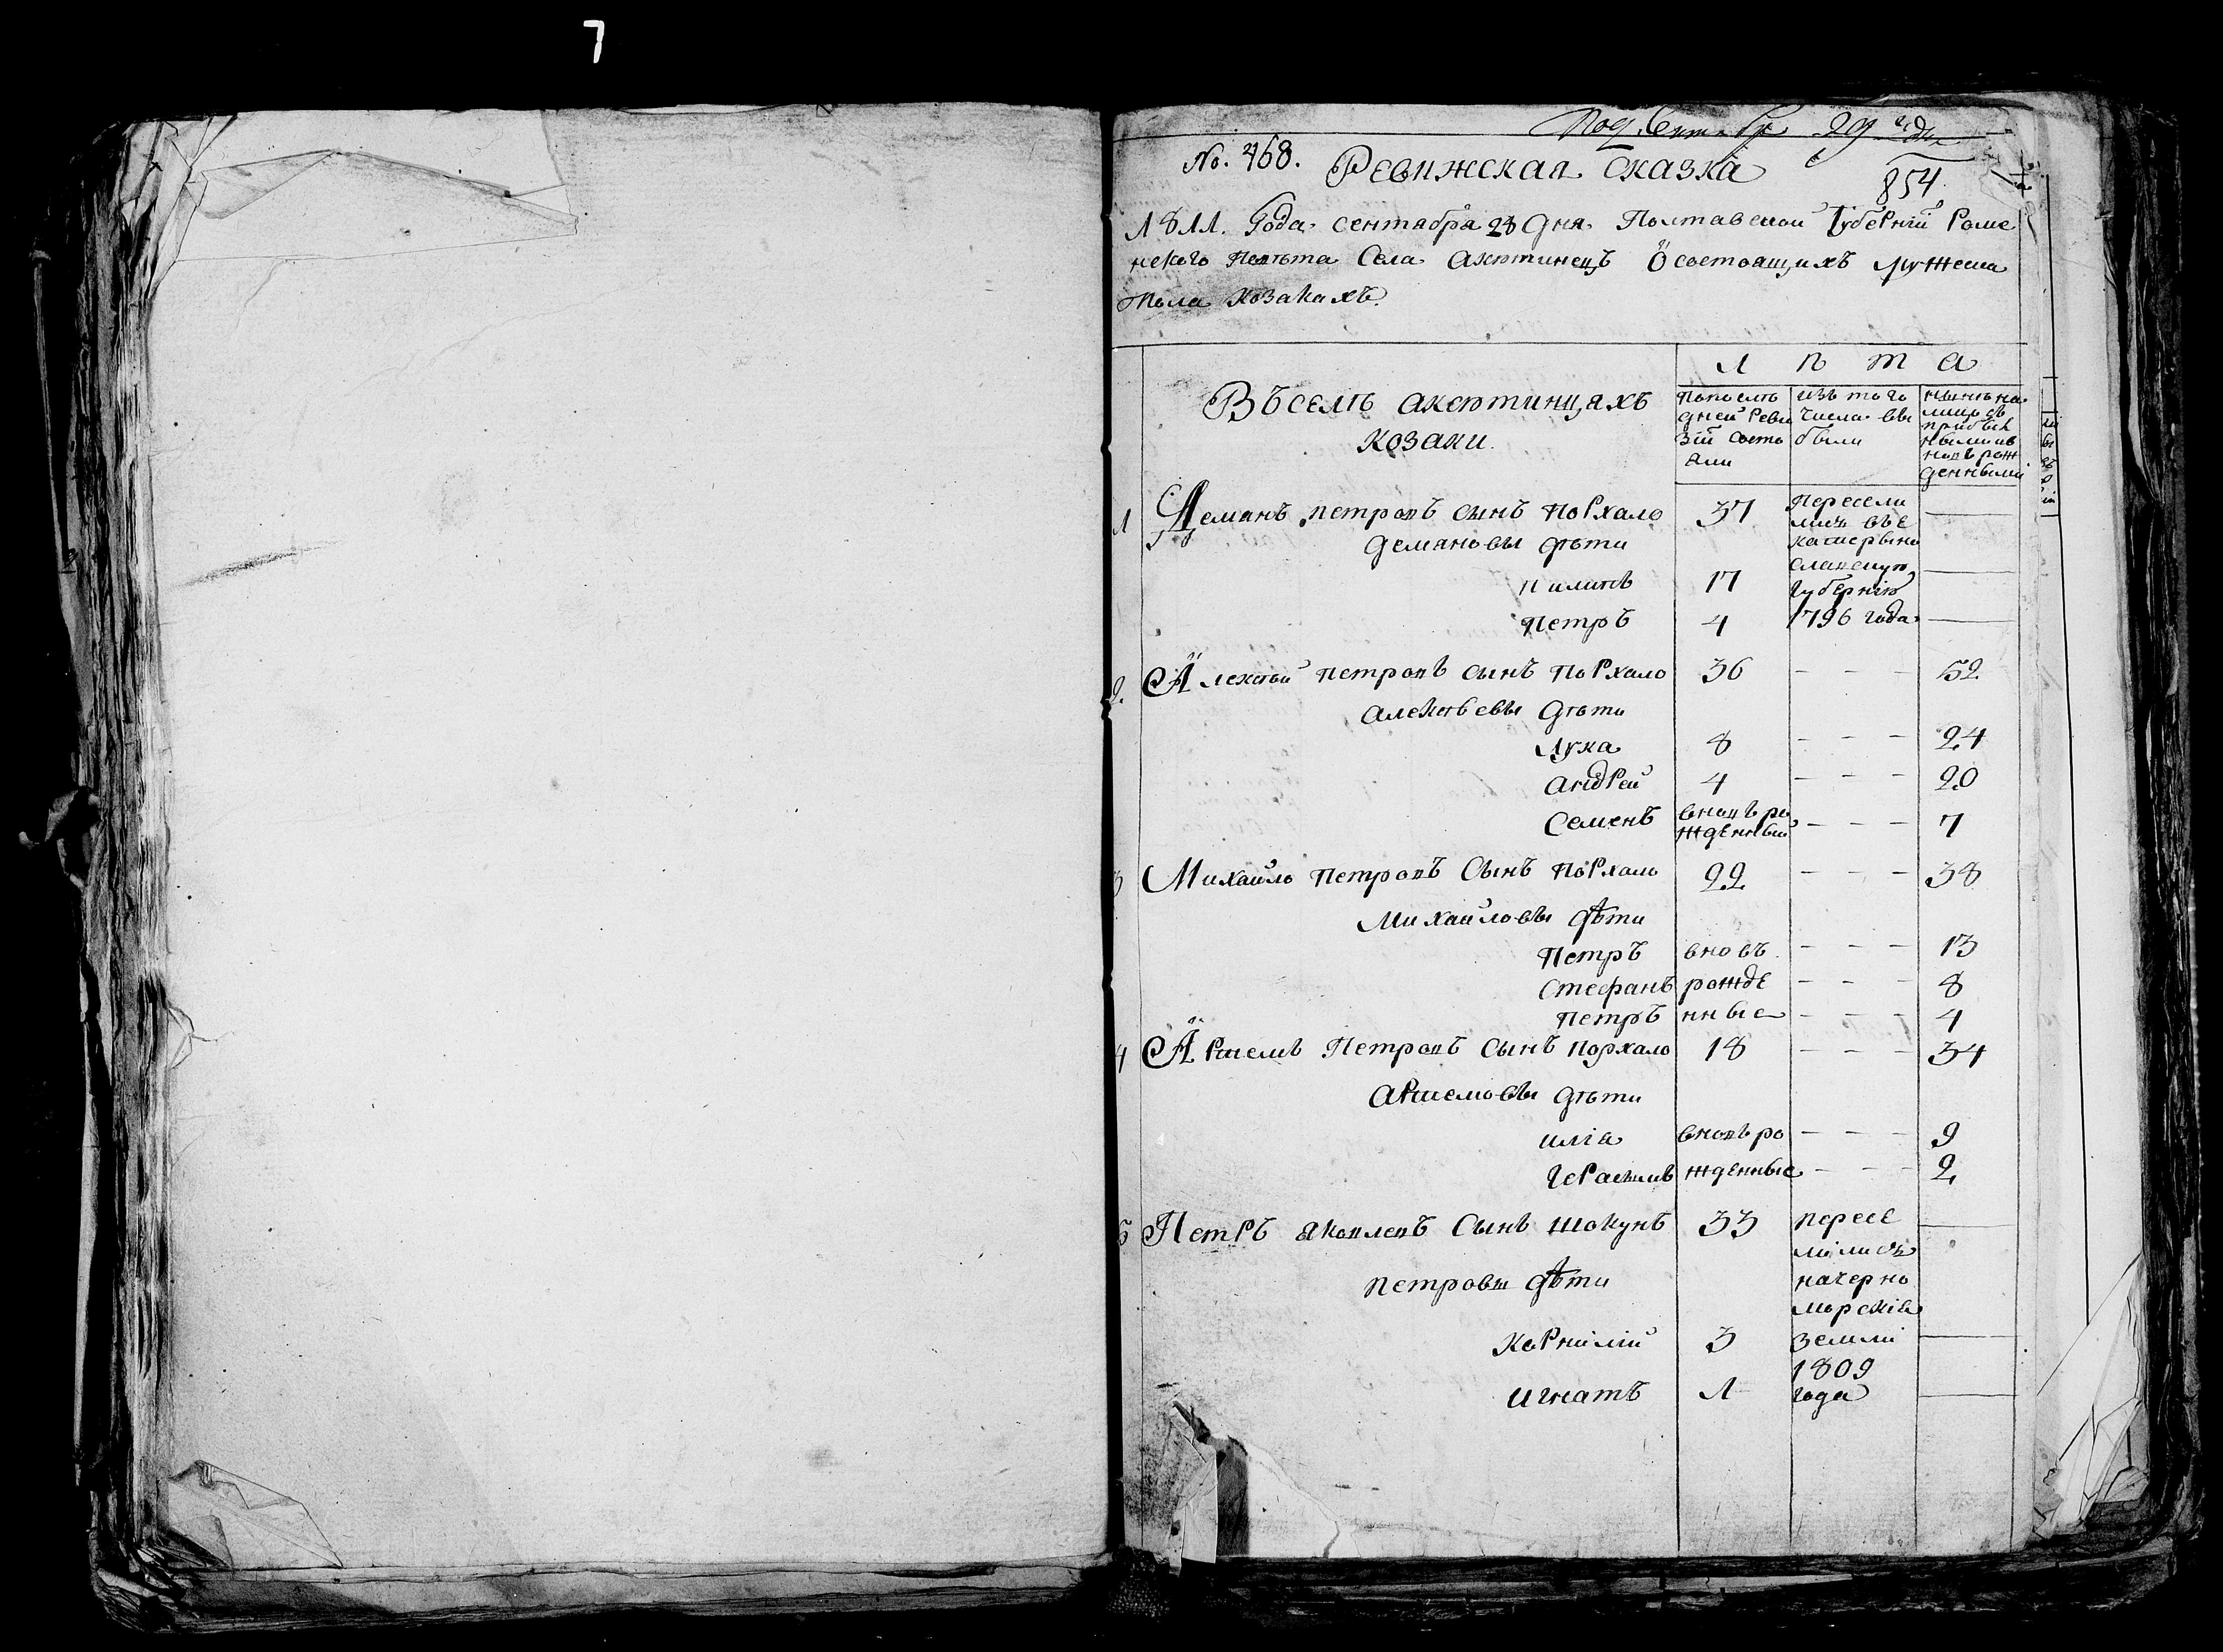 7
Под. Сентября 29 дня
No. 468. Ревижская сказка
854
1811. Года. сентабра 28 дня. Полтавской Губернїи Роме
нского Повѣта Села Аксютинецъ О состоящихъ мужеска
пола козакахъ.
Л ѣ т а
Въ селѣ аксютинцяхъ
козаки
попослѣ
дней Реви
зїи состо
яли
изъ того
числа вы
были
нынѣ на
лицо съ
прибыл
ными ив
новь рож
денными
1 Деманъ петровъ сынъ порхало 37 Пересели
лись въ Е
катерино
славскую
Губернїю
1796 года
демановы дѣти
пилипъ 17
петръ 4
2. Алексѣй петровъ сынъ порхало 36 – – – 52
алексѣевы дѣти
лука 8 – – – 24
андрей 4 – – – 20
семенъ вновь ро
жденный – – – 7
3 Михайло петровъ сынъ порхало 22 – – – 38
михайловы дѣти
петръ вновъ – – – 13
стефанъ рожде – – – 8
петръ нные – – – 4
4 Артемъ Петровъ сынъ порхало 18 – – – 34
артемовы дѣти
илїа вновь ро – – – 9
герасимъ жденные – – – 2
5 Петръ яковлевъ сынъ шокунъ 33 пересе
лились
начерно
морскїа
земли
1809
года
петровы дѣти
корнилїй 3
игнатъ 1